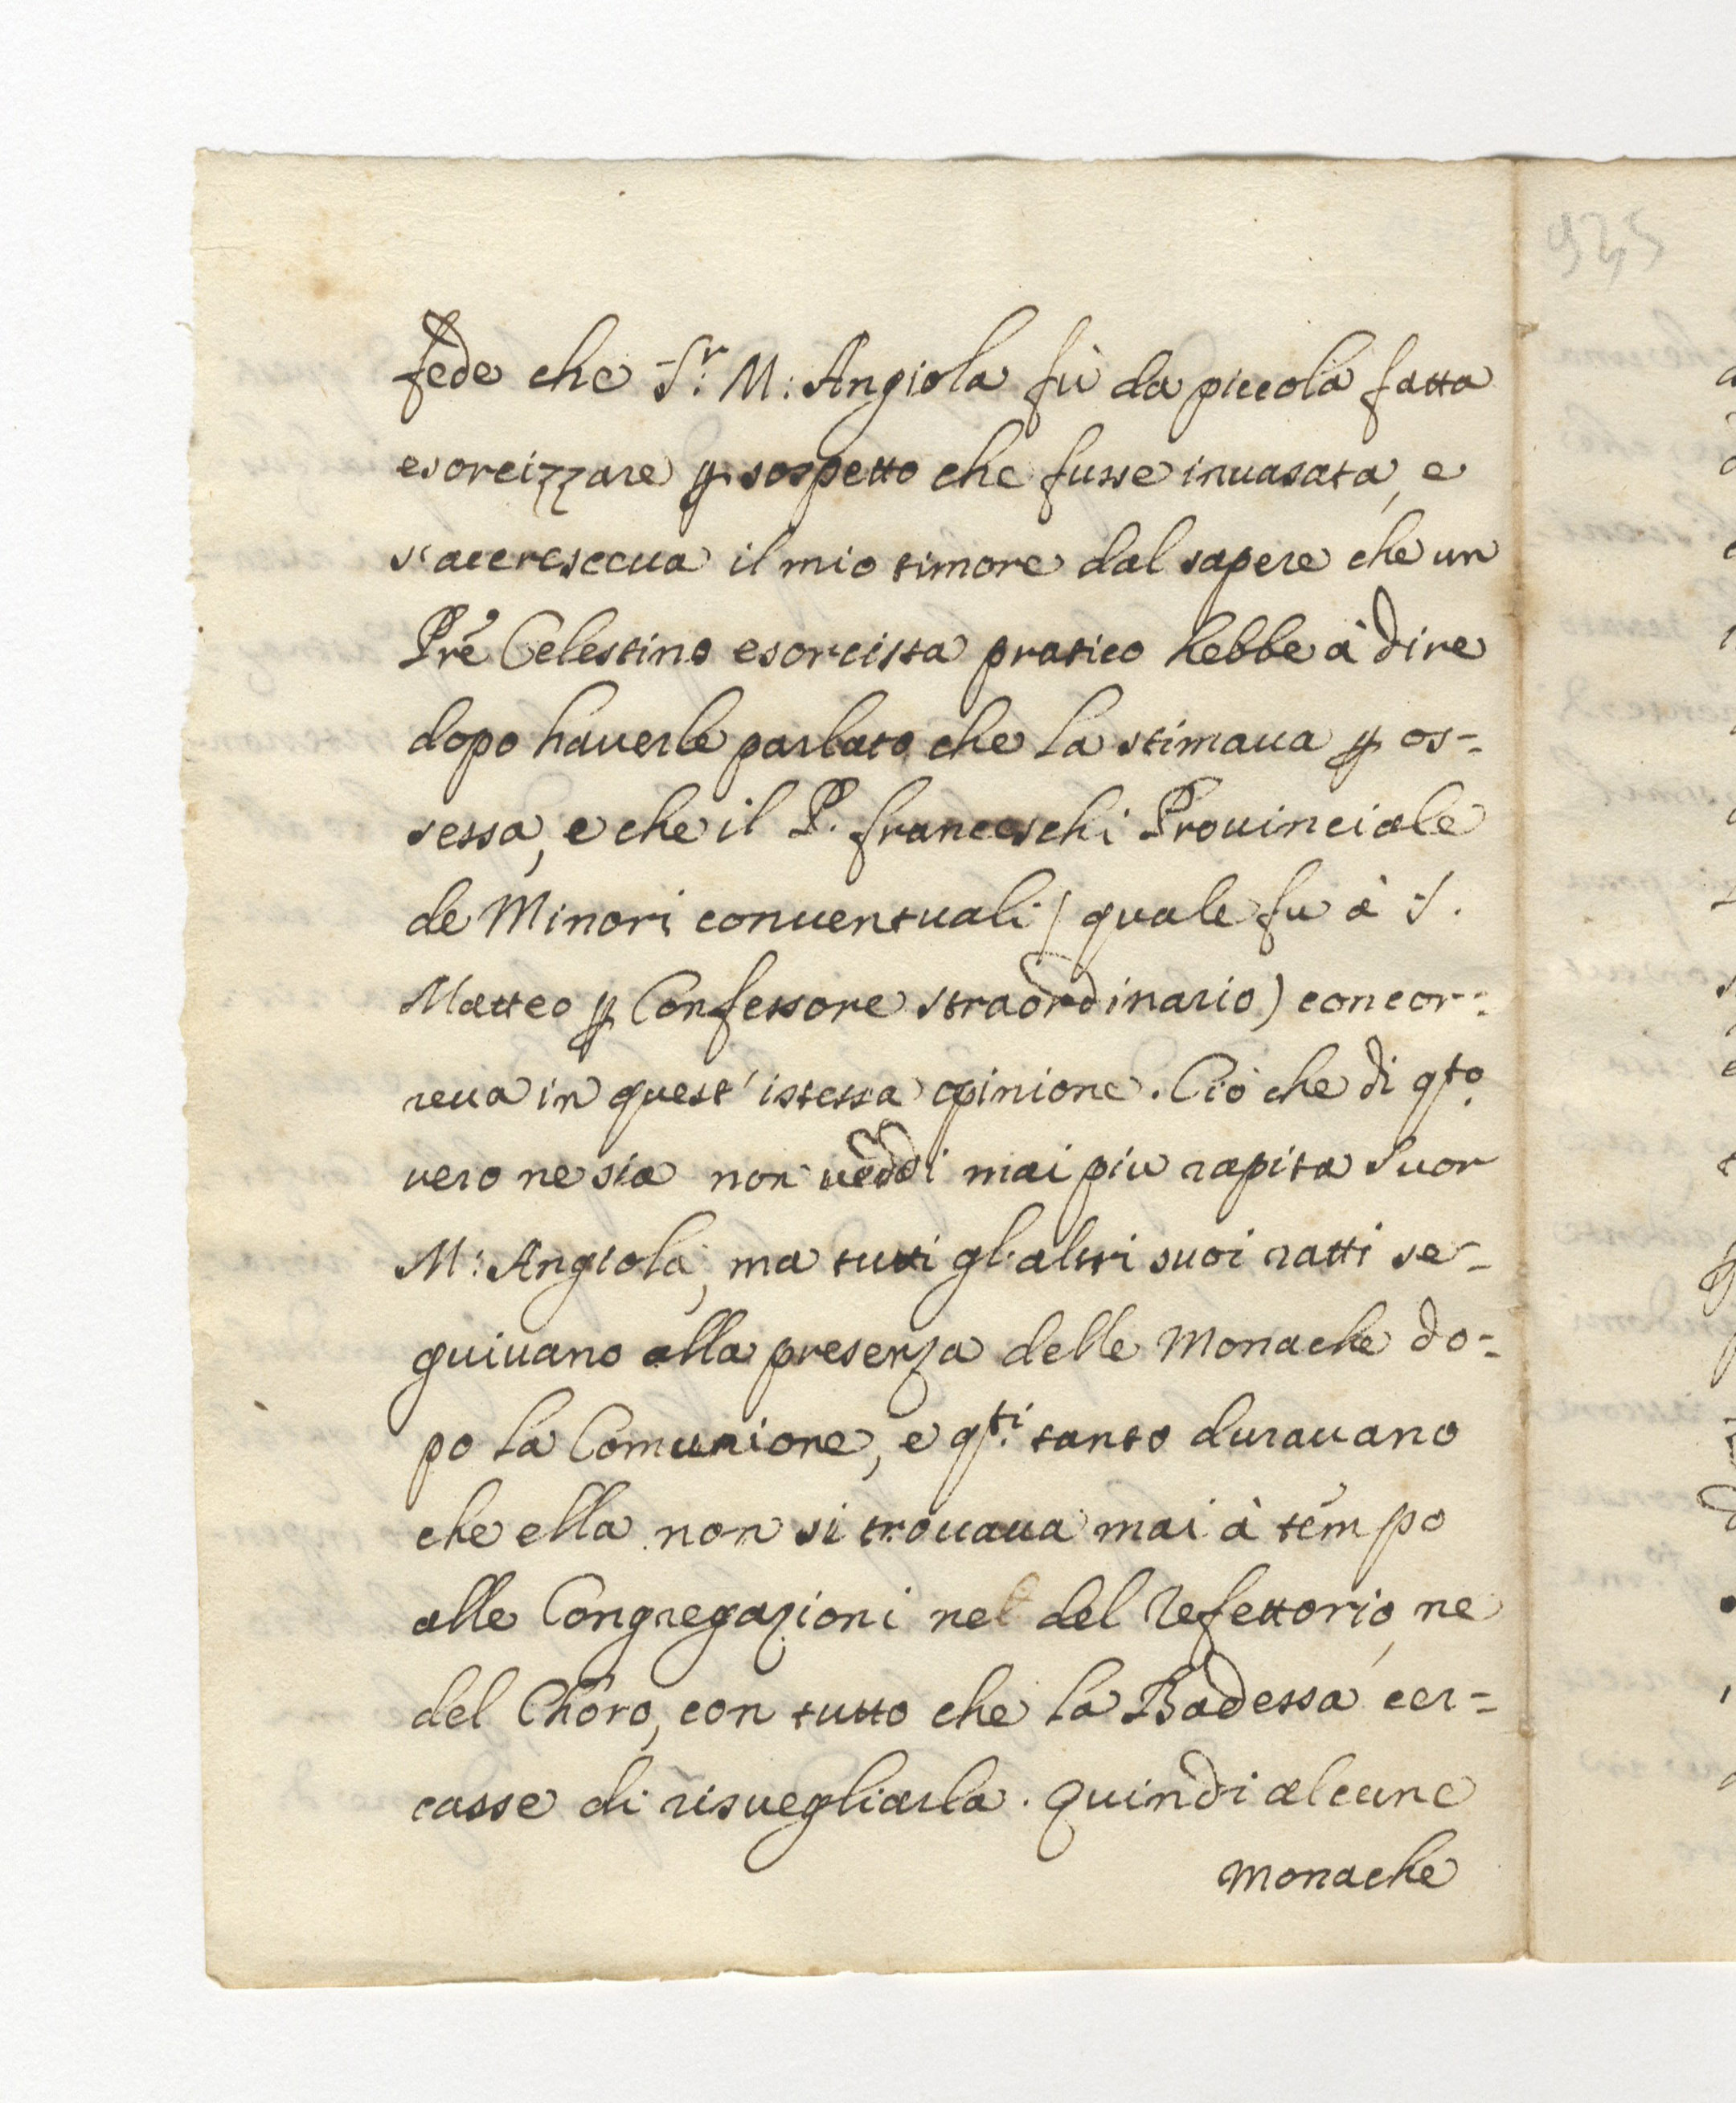 fede che S.r M: Angiola fù da piccola fatta
esorcizzare ꝑ sospetto che fusse inuasata, e
s'accresceua il mio timore dal sapere che un
Prẽ Celestino esorcista pratico hebbe à dire
dopo hauerle parlato che la stimaua ꝑ os-
sessa, e che il P. franceschi Prouinciale
de Minori conuentuali (quale fu à S.
Matteo ꝑ Confessore straordinario) concor-
reua in quest'istessa opinione. Ciò che di q.sto
uero ne sia non ueddi mai piu rapita Suor
M: Angiola, ma tutti gl'altri suoi ratti se-
guiuano alla presenza delle Monache do-
po la Comunione, e q.sti tanto durauano
che ella non si trouaua mai à tempo
alle Congregazioni ne del Refettorio, ne
del Choro, con tutto che la Badessa cer-
casse di risuegliarla. Quindi alcune
Monache
925